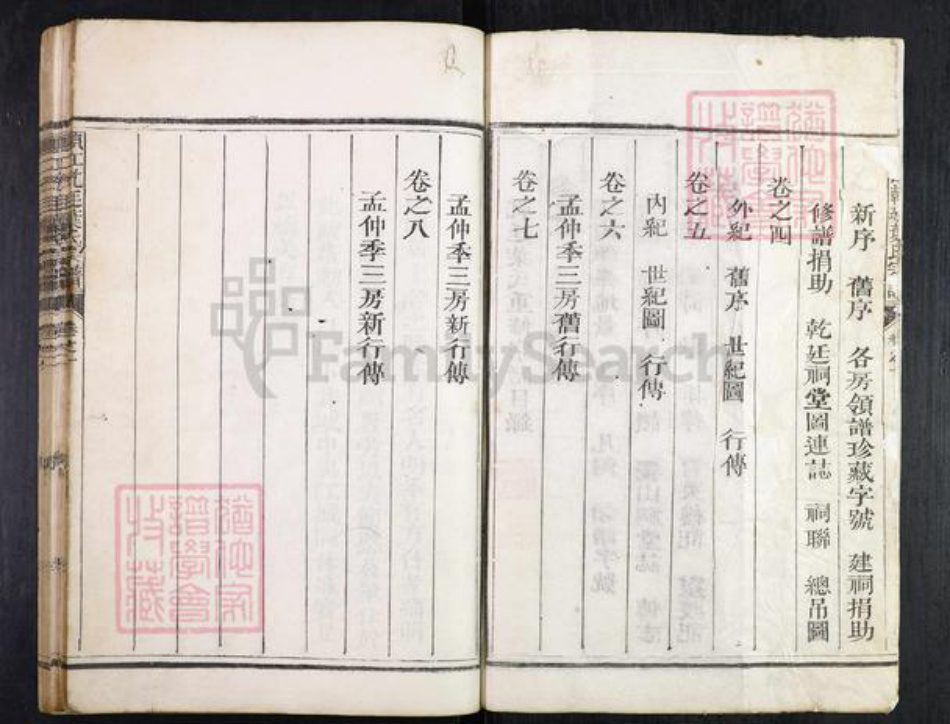 新序　舊序　各房領譜珍藏字號　建祠捐助
修譜捐助　乾廷祠堂圖連誌　祠聯　總吊圖
卷之四
外紀　舊序　世紀圖　行傳
卷之五
內紀　世紀圖　行傳
卷之六
孟仲季三房舊行傳
卷之七
孟仲季三房新行傳
卷之八
孟仲季三房新行傳
譜學會
收藏
譜學會
收藏
FamilySearch